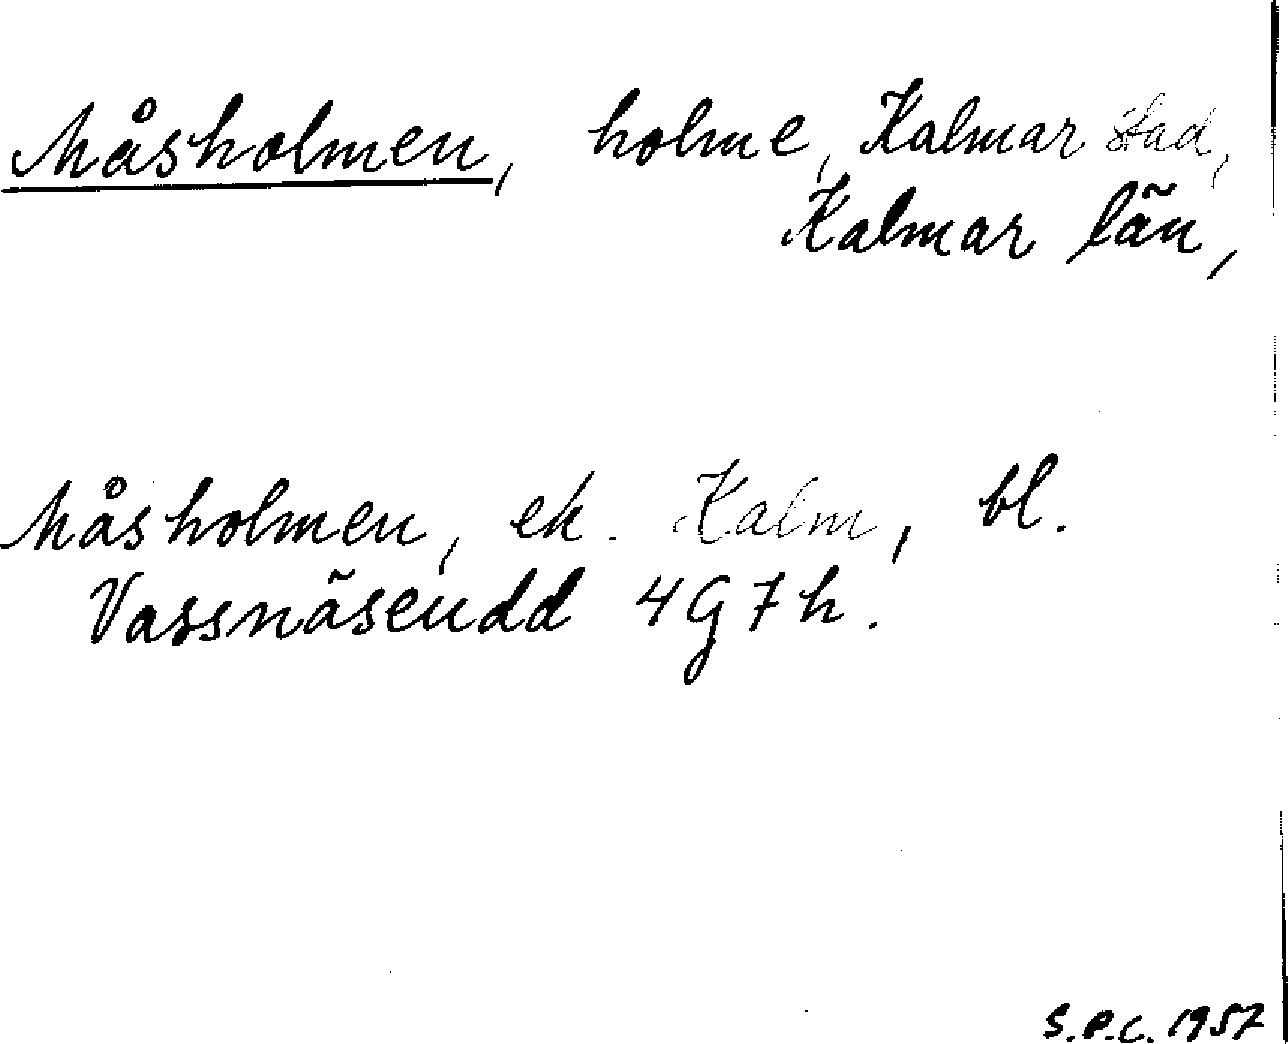 Måsholmen, holme, Kalmar stad,
Kalmar län,
Måsholmen, ek. Kalm, bl.
Vassnäsudd 4G7h.
S.P.C. 1957